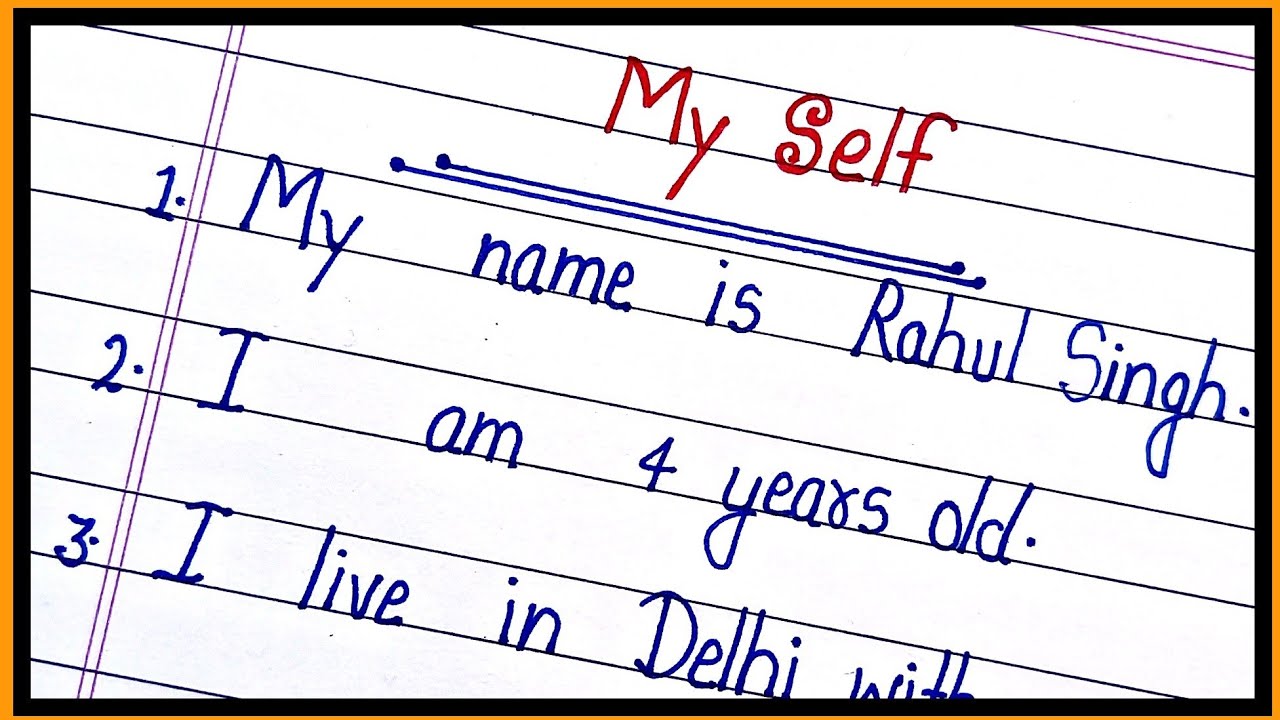 My Self
1. My name is Rahul Singh.
2. I am 4 years old.
3. I live in Delhi with